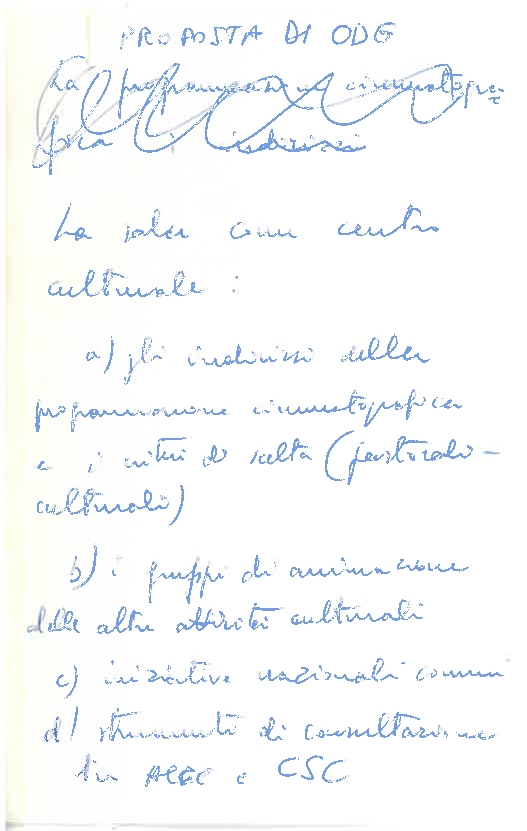 PROPOSTA DI ODG
La programmazione cinematogra=
fica i indirizzi
La sala come centro
culturale :
a) gli indirizzi della
programmazione cinematografica
e i criteri di scelta (pastorali-
culturali)
b) i gruppi di animazione
delle altre attività culturali
c) iniziative nazionali comuni
d) strumenti di consultazione
tra ACEC e CSC